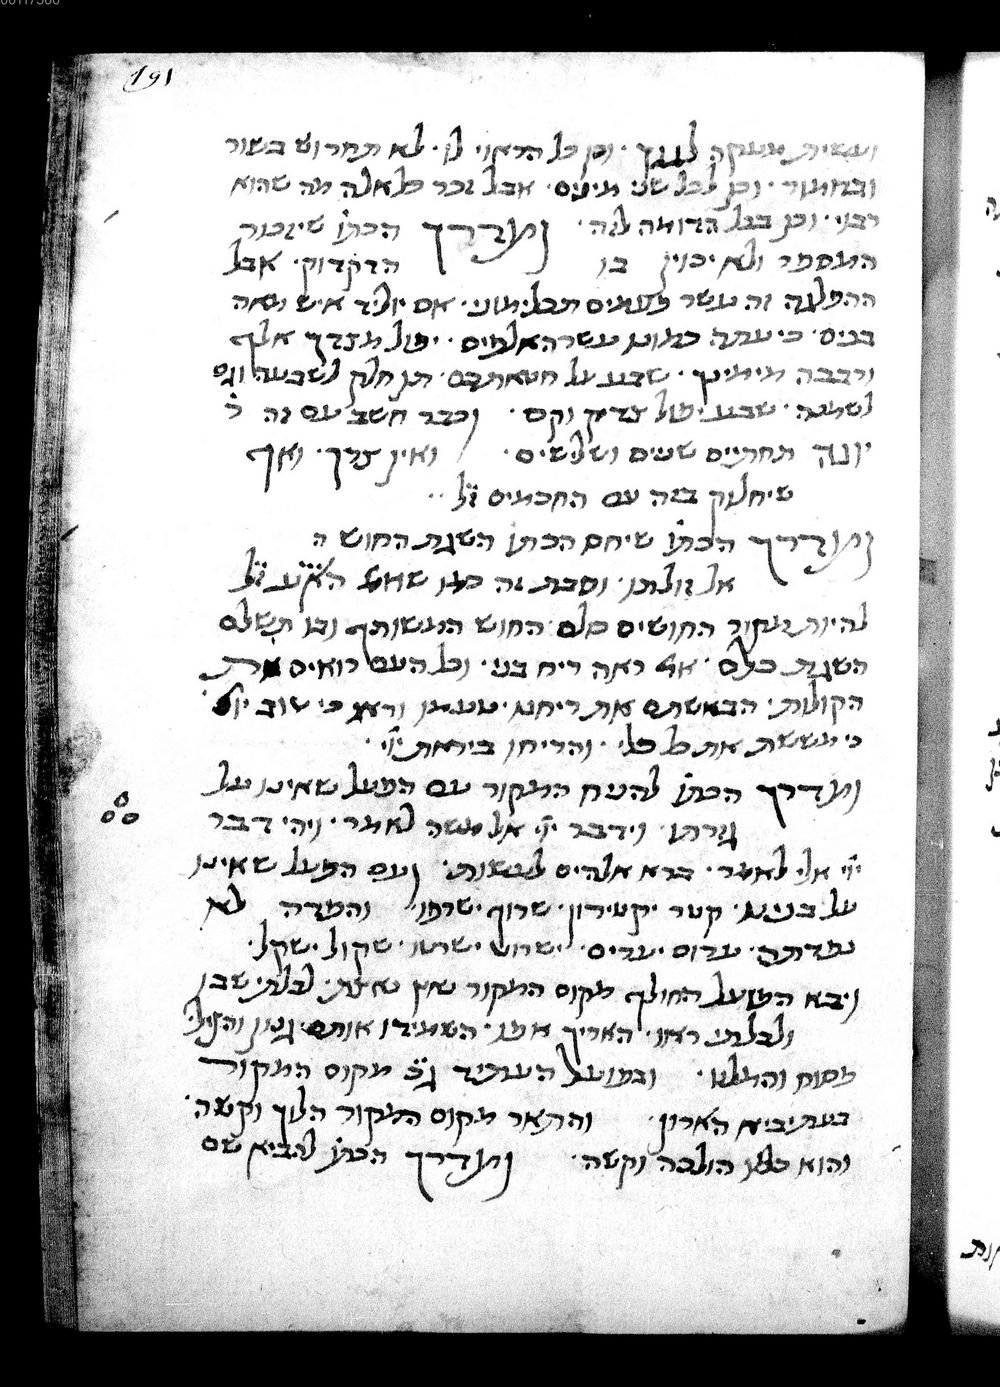 191
ועשית מעקה לגגך · וכן כל הראוי לו · לא תחרוש בשור
ובחמור · וכן לכל שני מינים · אבל זכר כל אלה מה שהוא
רבני · וכן בכל הדומה לזה · ומדרך הכתו שיזכור
המספר ולא יכוין בו הדקדוק · אבל
ההפלגה זה עשר פעמים תכלימוני · אם יוליד איש מאה
בנים · כי עתה כמונו עשרה אלפים · יפול מצדך אלף
ורבבה מימינך · שבע על חטאתכם · תן חלק לשבעה וגם
לשמנה · שבע יפול צדיק וקם · וכבר חשב עם זה ר
יונה תחתיים שנים ושלישים · ואין צרך · ואף
שיחלוק בזה עם החכמים ז״ל ··
ומדרך הכתו שיחס הכתו השגת החוש ה
אל זולתו · וסבת זה כמו שאמ׳ הא״ע ז״ל
להיות עקור החושים כלם החוש המשותף ובו תשלם
השגת כלם · אמ׳ ראה ריח בני · וכל העם רואים את
הקולות · הבאשתם את ריחנו · טעמו וראו כי טוב יי׳ ·
כי מששת את כל כלי · והריחו ביראת יי׳ ·
ומדרך הכתו להניח המקור עם הפעל שאינו על
גזרתו · וידבר יי׳ אל משה לאמר · ויהי דבר
יי׳ אלי לאמר · ברא אלהים לעשות · ועם הפעל שאינו
על בנינו · קטר יקטירון · שרוף ישרפו · והפדה לא
נפדתה · ערום יערים · ישרוט ישרטו · שקול ישקל ·
ויבא הפועל החולף מקום המקור · לבלתי שבו
ולבלתי ראו · האריך אפו · השמידו אותם · גנון והציל ·
פסוח והמליט · ובפועל העתיד ג״כ מקום המקור
בעת יביא הארון · והתאר מקום המקור הלוך וקשה ·
והוא כמו הולכה וקשה · ומדרך הכתו להביא שם